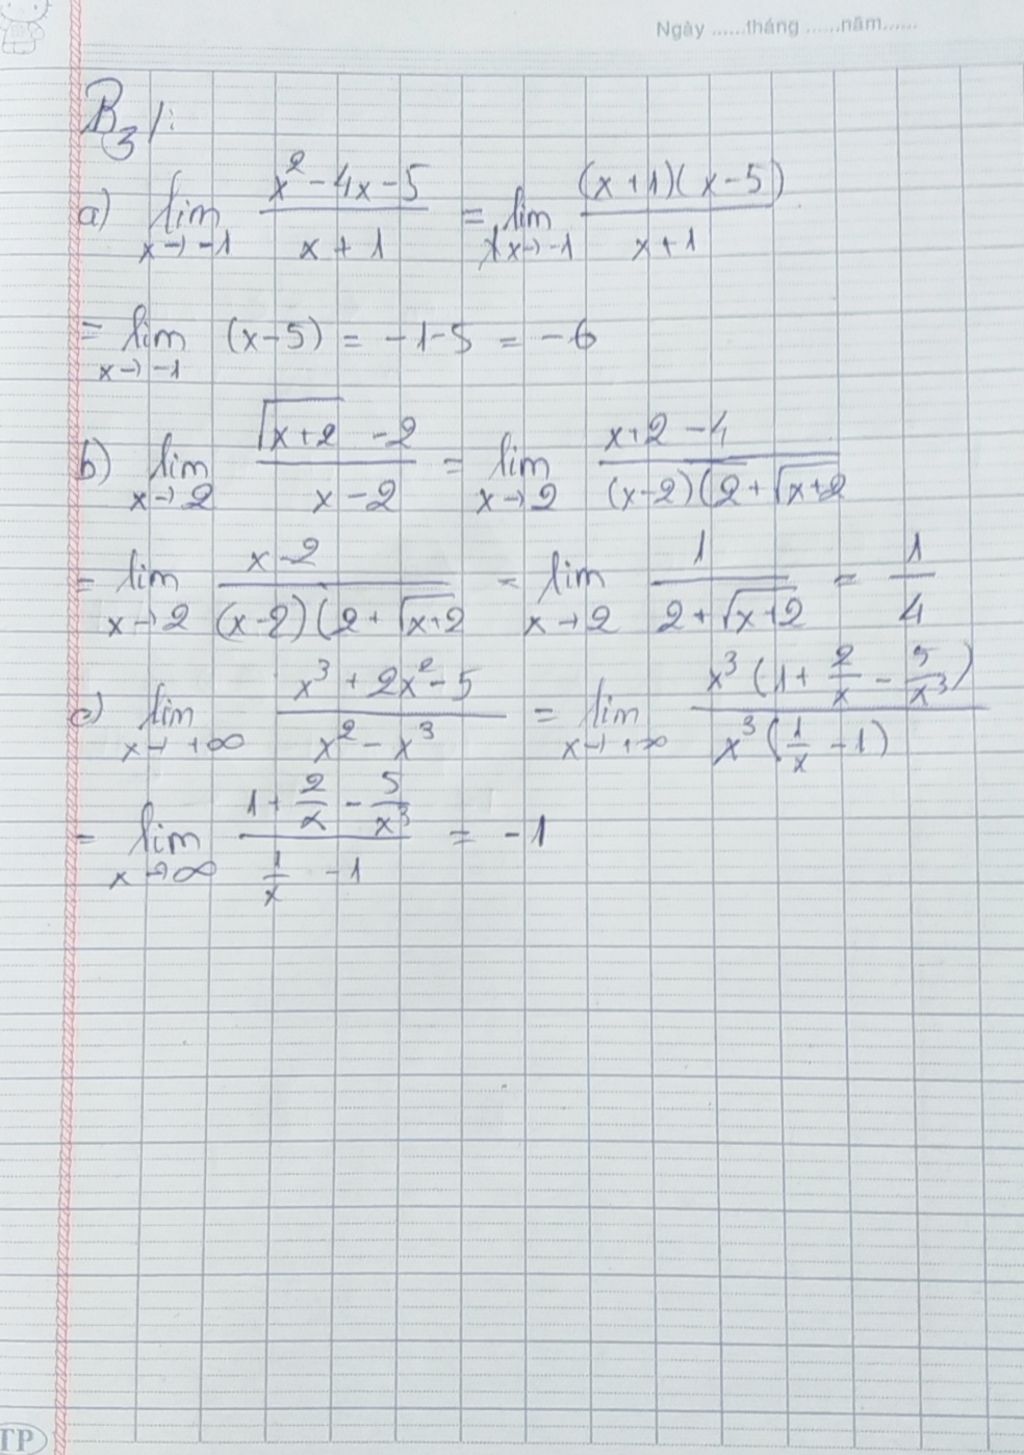 Ngày ......tháng ......năm......
B3/:
a) lim x→-1 (x² - 4x - 5)/(x + 1) = lim x→-1 ((x+1)(x-5))/(x+1)
= lim x→-1 (x-5) = -1-5 = -6
b) lim x→2 (√(x+2) - 2)/(x-2) = lim x→2 (x+2-4)/((x-2)(2+√(x+2)
= lim x→2 (x-2)/((x-2)(2+√(x+2) = lim x→2 1/(2+√(x+2)) = 1/4
c) lim x→+∞ (x³ + 2x² - 5)/(x² - x³) = lim x→+∞ (x³(1 + 2/x - 5/x³))/(x³(1/x - 1))
= lim x→∞ (1 + 2/x - 5/x³)/(1/x - 1) = -1
TP